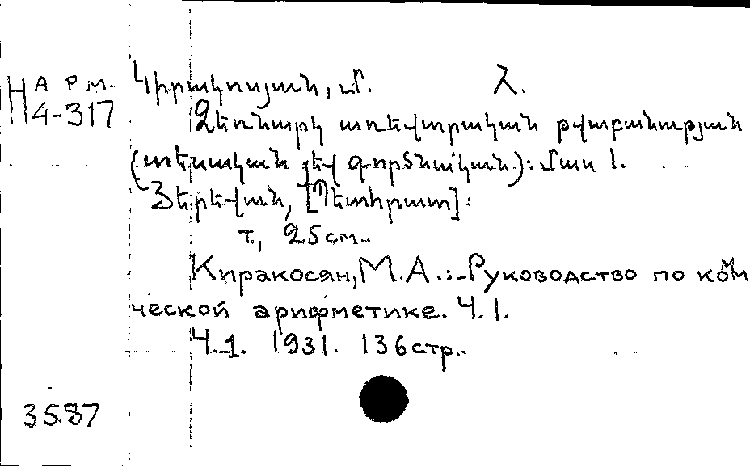 Н Арм.
4-317
Կիրակոսյան, Մ. Հ.
Ձեռնարկ առեվտրական թվաբանության
(տեսական յեվ գործնական): Մաս 1.
Յերեվան, [Պետհրատ]:
т., 25 см.
Киракосян, М.А.:-Руководство по ком
ческой арифметике. Ч.1.
Ч.1. 1931. 136 стр.
3587